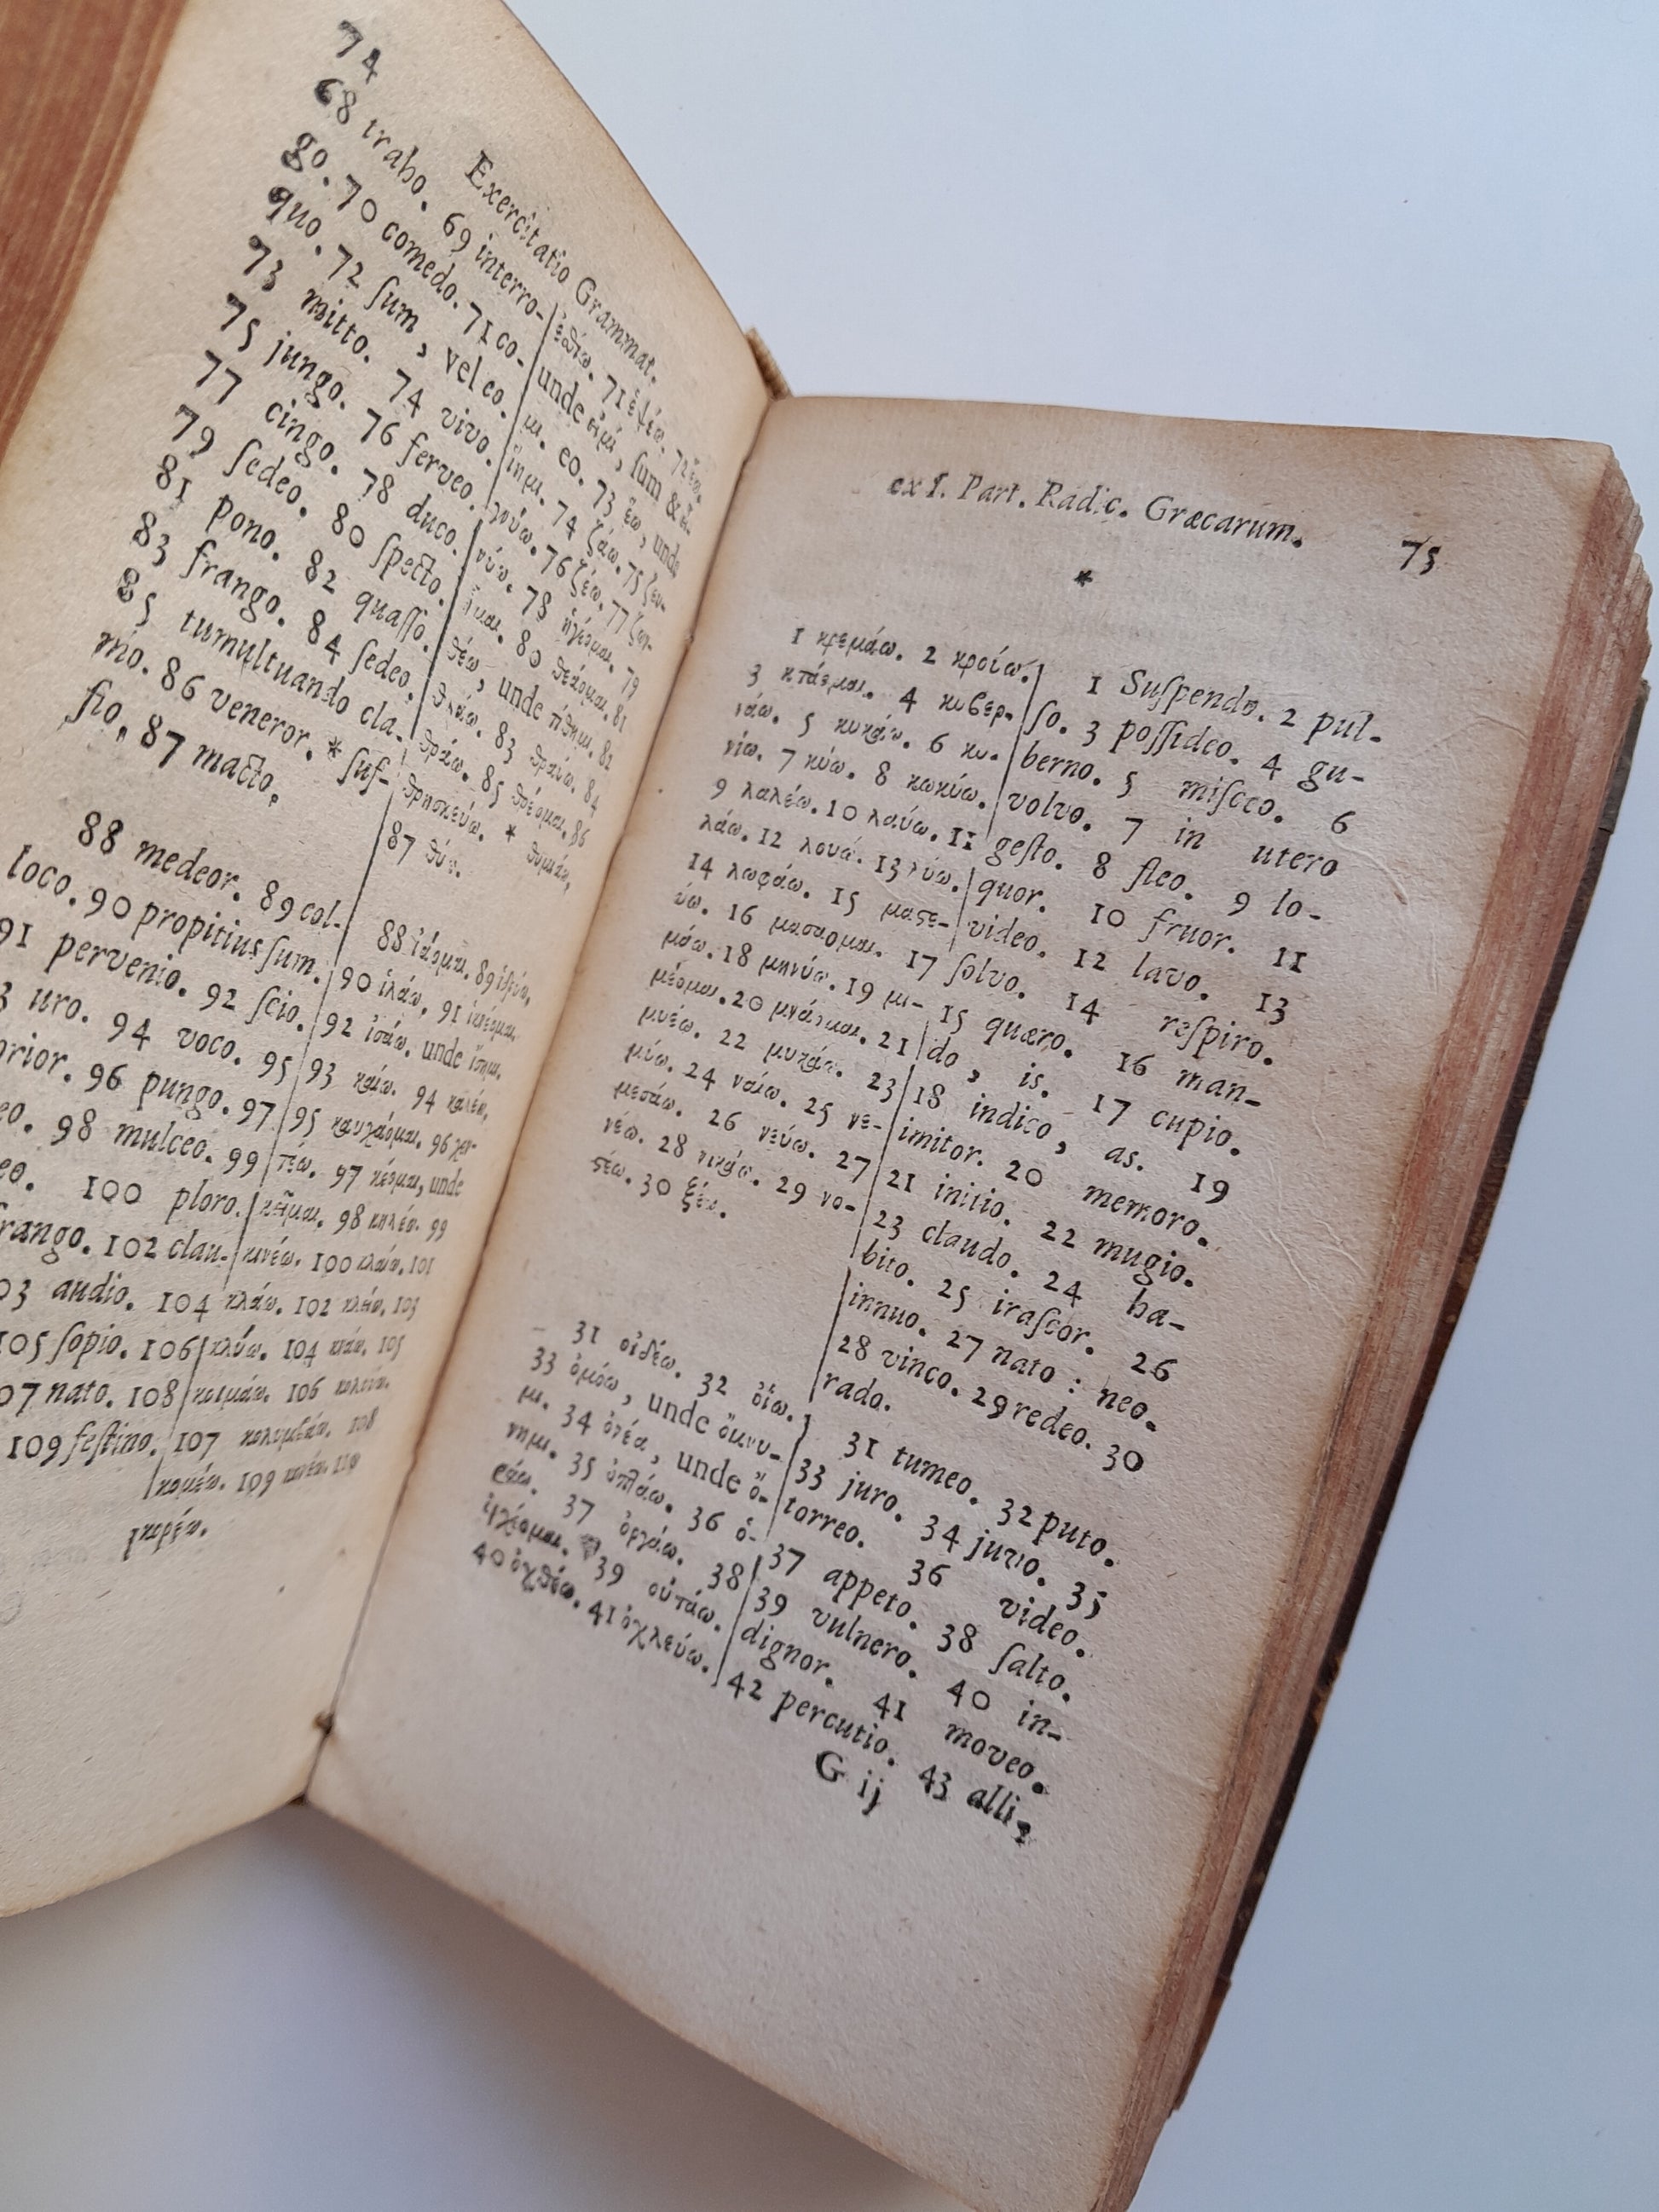 74
Exercitatio Grammat.
68 traho. 69 interro-
go. 70 comedo. 71 co-
quo. 72 ſum, vel eo.
73 mitto. 74 vivo.
75 jungo. 76 ferveo.
77 cingo. 78 duco.
79 ſedeo. 80 ſpecto.
81 pono. 82 quaſſo.
83 frango. 84 ſedeo.
85 tumultuando cla-
mo. 86 veneror. * ſuf-
fio. 87 macto.
88 medeor. 89 col-
loco. 90 propitius ſum.
91 pervenio. 92 ſcio.
uro. 94 voco. 95
96 pungo. 97
98 mulceo. 99
100 ploro.
102 clau-
audio. 104
105 ſopio. 106
nato. 108
109 feſtino.
71 ἑψέω. 72 ἔω.
unde εἰμί, ſum &
μι. eo. 73 ἕω, unde
ἵημι. 74 ζάω. 75 ζευ-
γνύω. 76 ζέω. 77 ζων-
νύω. 78 ἡγέομαι. 79
ἧμαι. 80 θεάομαι. 81
θέω, unde τίθημι. 82
θλάω. 83 θραύω. 84
θράω. 85 θρέομαι. 86
θρησκεύω. * θυμιάω.
87 θύω.
88 ἰάομαι. 89 ἱδρύω.
90 ἱλάω. 91 ἱκνέομαι.
92 ἰσάω, unde ἴσημι.
93 καίω. 94 καλέω.
95 καυχάομαι. 96 κεν-
τέω. 97 κέομαι, unde
κεῖμαι. 98 κηλέω. 99
κινέω. 100 κλαίω. 101
κλάω. 102 κλείω. 103
κλύω. 104 105
κοιμάω. 106
107 κολυμβάω. 108
κομέω. 109 110
κορέω.
ex I. Part. Radic. Græcarum. 75
*
1 κρεμάω. 2 κρούω.
3 κτάομαι. 4 κυβερ-
νάω. 5 κυκάω. 6 κυ-
λίω. 7 κύω. 8 κωκύω.
9 λαλέω. 10 λαύω. 11
λάω. 12 λούω. 13 λύω.
14 λωφάω. 15 μαστε-
ύω. 16 μασσομαι. 17
μάω. 18 μηνύω. 19 μι-
μέομαι. 20 μνάομαι. 21
μυέω. 22 μυκάω. 23
μύω. 24 ναίω. 25 νε-
μεσάω. 26 νεύω. 27
νέω. 28 νικάω. 29 νο-
στέω. 30 ξέω.
31 οἰδέω. 32 οἴω.
33 ὀμόω, unde ὄμνυ-
μι. 34 ὀνέω, unde ὄ-
νημι. 35 ὀπτάω. 36 ὁ-
ράω. 37 ὀργάω. 38
ὀρχέομαι. 39 οὐτάω.
40 ὀχθέω. 41 ὀχλεύω.
1 Suſpendo. 2 pul-
ſo. 3 poſſideo. 4 gu-
berno. 5 miſceo. 6
volvo. 7 in utero
geſto. 8 fleo. 9 lo-
quor. 10 fruor. 11
video. 12 lavo. 13
ſolvo. 14 reſpiro.
15 quæro. 16 man-
do, is. 17 cupio.
18 indico, as. 19
imitor. 20 memoro.
21 initio. 22 mugio.
23 claudo. 24 ha-
bito. 25 iraſcor. 26
innuo. 27 nato : neo.
28 vinco. 29 redeo. 30
rado.
31 tumeo. 32 puto.
33 juro. 34 juvo. 35
torreo. 36 video.
37 appeto. 38 ſalto.
39 vulnero. 40 in-
dignor. 41 moveo.
42 percutio. 43 alli-
G ij